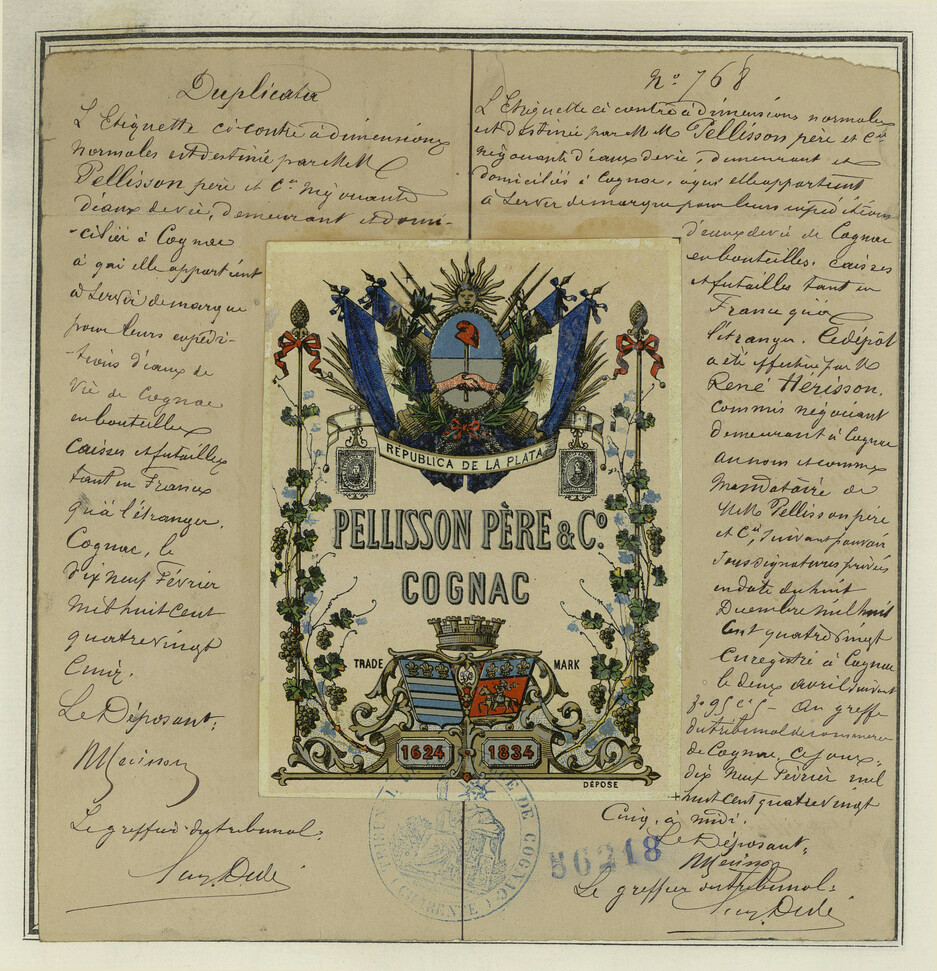 Duplicata
L'Etiquette ci-contre à dimensions
normales est destinée par MM
Pellisson père et Cie négociants
d'eaux de vie, demeurant et domi-
-ciliés à Cognac
à qui elle appartient
à servir de marque
pour leurs expédi-
-tions d'eaux de
vie de Cognac
en bouteilles
caisses et futailles
tant en France
qu'à l'étranger.
Cognac, le
dix neuf Février
mil huit cent
quatre vingt
cinq.
Le Déposant:
Le greffier du tribunal:
No 768
L'Etiquette ci contre à dimensions normales
est destinée par MM Pellisson père et Cie
négociants d'eaux de vie, demeurant et
domiciliés à Cognac, à qui elle appartient
à servir de marque pour leurs expéditions
d'eaux de vie de Cognac
en bouteilles, caisses
et futailles tant en
France qu'à
l'étranger. Ce dépôt
a été effectué par M
René Hérisson,
commis négociant
demeurant à Cognac
au nom et comme
mandataire de
MM. Pellisson père
et Cie, suivant pouvoir
sous signatures privées
en date du huit
Décembre mil huit
cent quatre vingt
enregistré à Cognac
le deux avril suivant
Au greffe
du tribunal de commerce
de Cognac, ce jour,
dix neuf Février mil
huit cent quatre vingt
cinq, à midi.
Le Déposant:
Le greffier du tribunal:
REPUBLICA DE LA PLATA
PELLISSON PÈRE & Co.
COGNAC
TRADE MARK
1624 1834
DÉPOSÉ
DE COGNAC
(CHARENTE)
56218